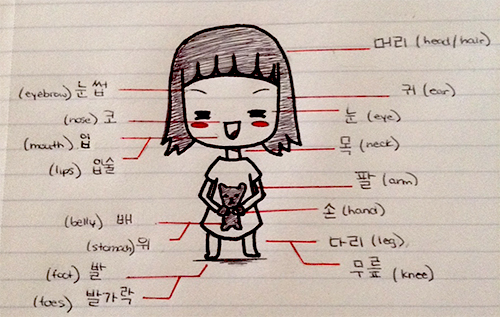 머리 (head/hair)
(eyebrow) 눈썹
귀 (ear)
(nose) 코
눈 (eye)
(mouth) 입
목 (neck)
(lips) 입술
팔 (arm)
손 (hand)
(belly) 배
(stomach) 위
다리 (leg)
(foot) 발
무릎 (knee)
(toes) 발가락